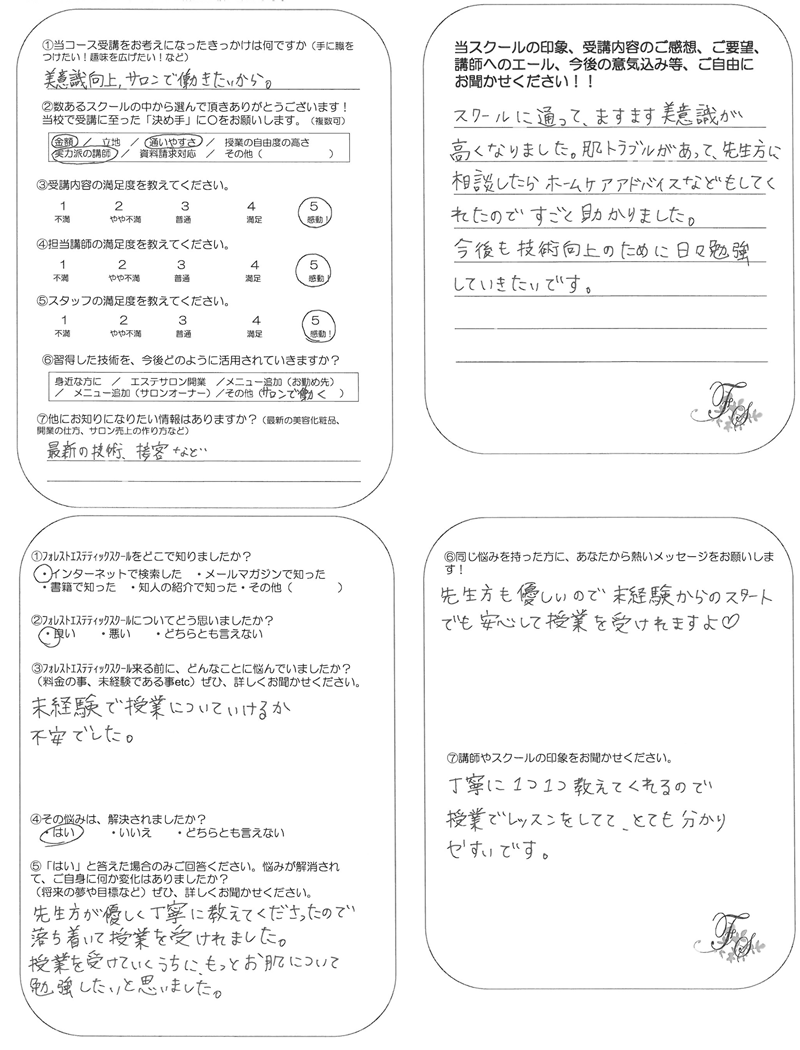 ①当コース受講をお考えになったきっかけは何ですか（手に職を
つけたい！趣味を広げたい！など）
美意識向上,サロンで働きたいから。
②数あるスクールの中から選んで頂きありがとうございます！
当校で受講に至った「決め手」に○をお願いします。（複数可）
金額 ／ 立地 ／ 通いやすさ ／ 授業の自由度の高さ
実力派の講師 ／ 資料請求対応 ／ その他（ ）
③受講内容の満足度を教えてください。
1 2 3 4 5
不満 やや不満 普通 満足 感動！
④担当講師の満足度を教えてください。
1 2 3 4 5
不満 やや不満 普通 満足 感動！
⑤スタッフの満足度を教えてください。
1 2 3 4 5
不満 やや不満 普通 満足 感動！
⑥習得した技術を、今後どのように活用されていきますか？
身近な方に ／ エステサロン開業 ／メニュー追加（お勤め先）
／ メニュー追加（サロンオーナー）／その他（サロンで働く ）
⑦他にお知りになりたい情報はありますか？（最新の美容化粧品、
開業の仕方、サロン売上の作り方など）
最新の技術、接客など
当スクールの印象、受講内容のご感想、ご要望、
講師へのエール、今後の意気込み等、ご自由に
お聞かせください！！
スクールに通って、ますます美意識が
高くなりました。肌トラブルがあって、先生方に
相談したらホームケアアドバイスなどもしてく
れたのですごく助かりました。
今後も技術向上のために日々勉強
していきたいです。
FS
①ﾌｫﾚｽﾄｴｽﾃﾃｨｯｸｽｸｰﾙをどこで知りましたか？
・インターネットで検索した ・メールマガジンで知った
・書籍で知った ・知人の紹介で知った・その他（ ）
②ﾌｫﾚｽﾄｴｽﾃﾃｨｯｸｽｸｰﾙについてどう思いましたか？
・良い ・悪い ・どちらとも言えない
③ﾌｫﾚｽﾄｴｽﾃﾃｨｯｸｽｸｰﾙ来る前に、どんなことに悩んでいましたか？
（料金の事、未経験である事etc）ぜひ、詳しくお聞かせください。
未経験で授業についていけるか
不安でした。
④その悩みは、解決されましたか？
・はい ・いいえ ・どちらとも言えない
⑤「はい」と答えた場合のみご回答ください。悩みが解消され
て、ご自身に何か変化はありましたか？
（将来の夢や目標など）ぜひ、詳しくお聞かせください。
先生方が優しく丁寧に教えてくださったので
落ち着いて授業を受けれました。
授業を受けていくうちに、もっとお肌について
勉強したいと思いました。
⑥同じ悩みを持った方に、あなたから熱いメッセージをお願いしま
す！
先生方も優しいので未経験からのスタート
でも安心して授業を受けれますよ♡
⑦講師やスクールの印象をお聞かせください。
丁寧に1つ1つ教えてくれるので
授業でレッスンをしてて、とても分かり
やすいです。
FS